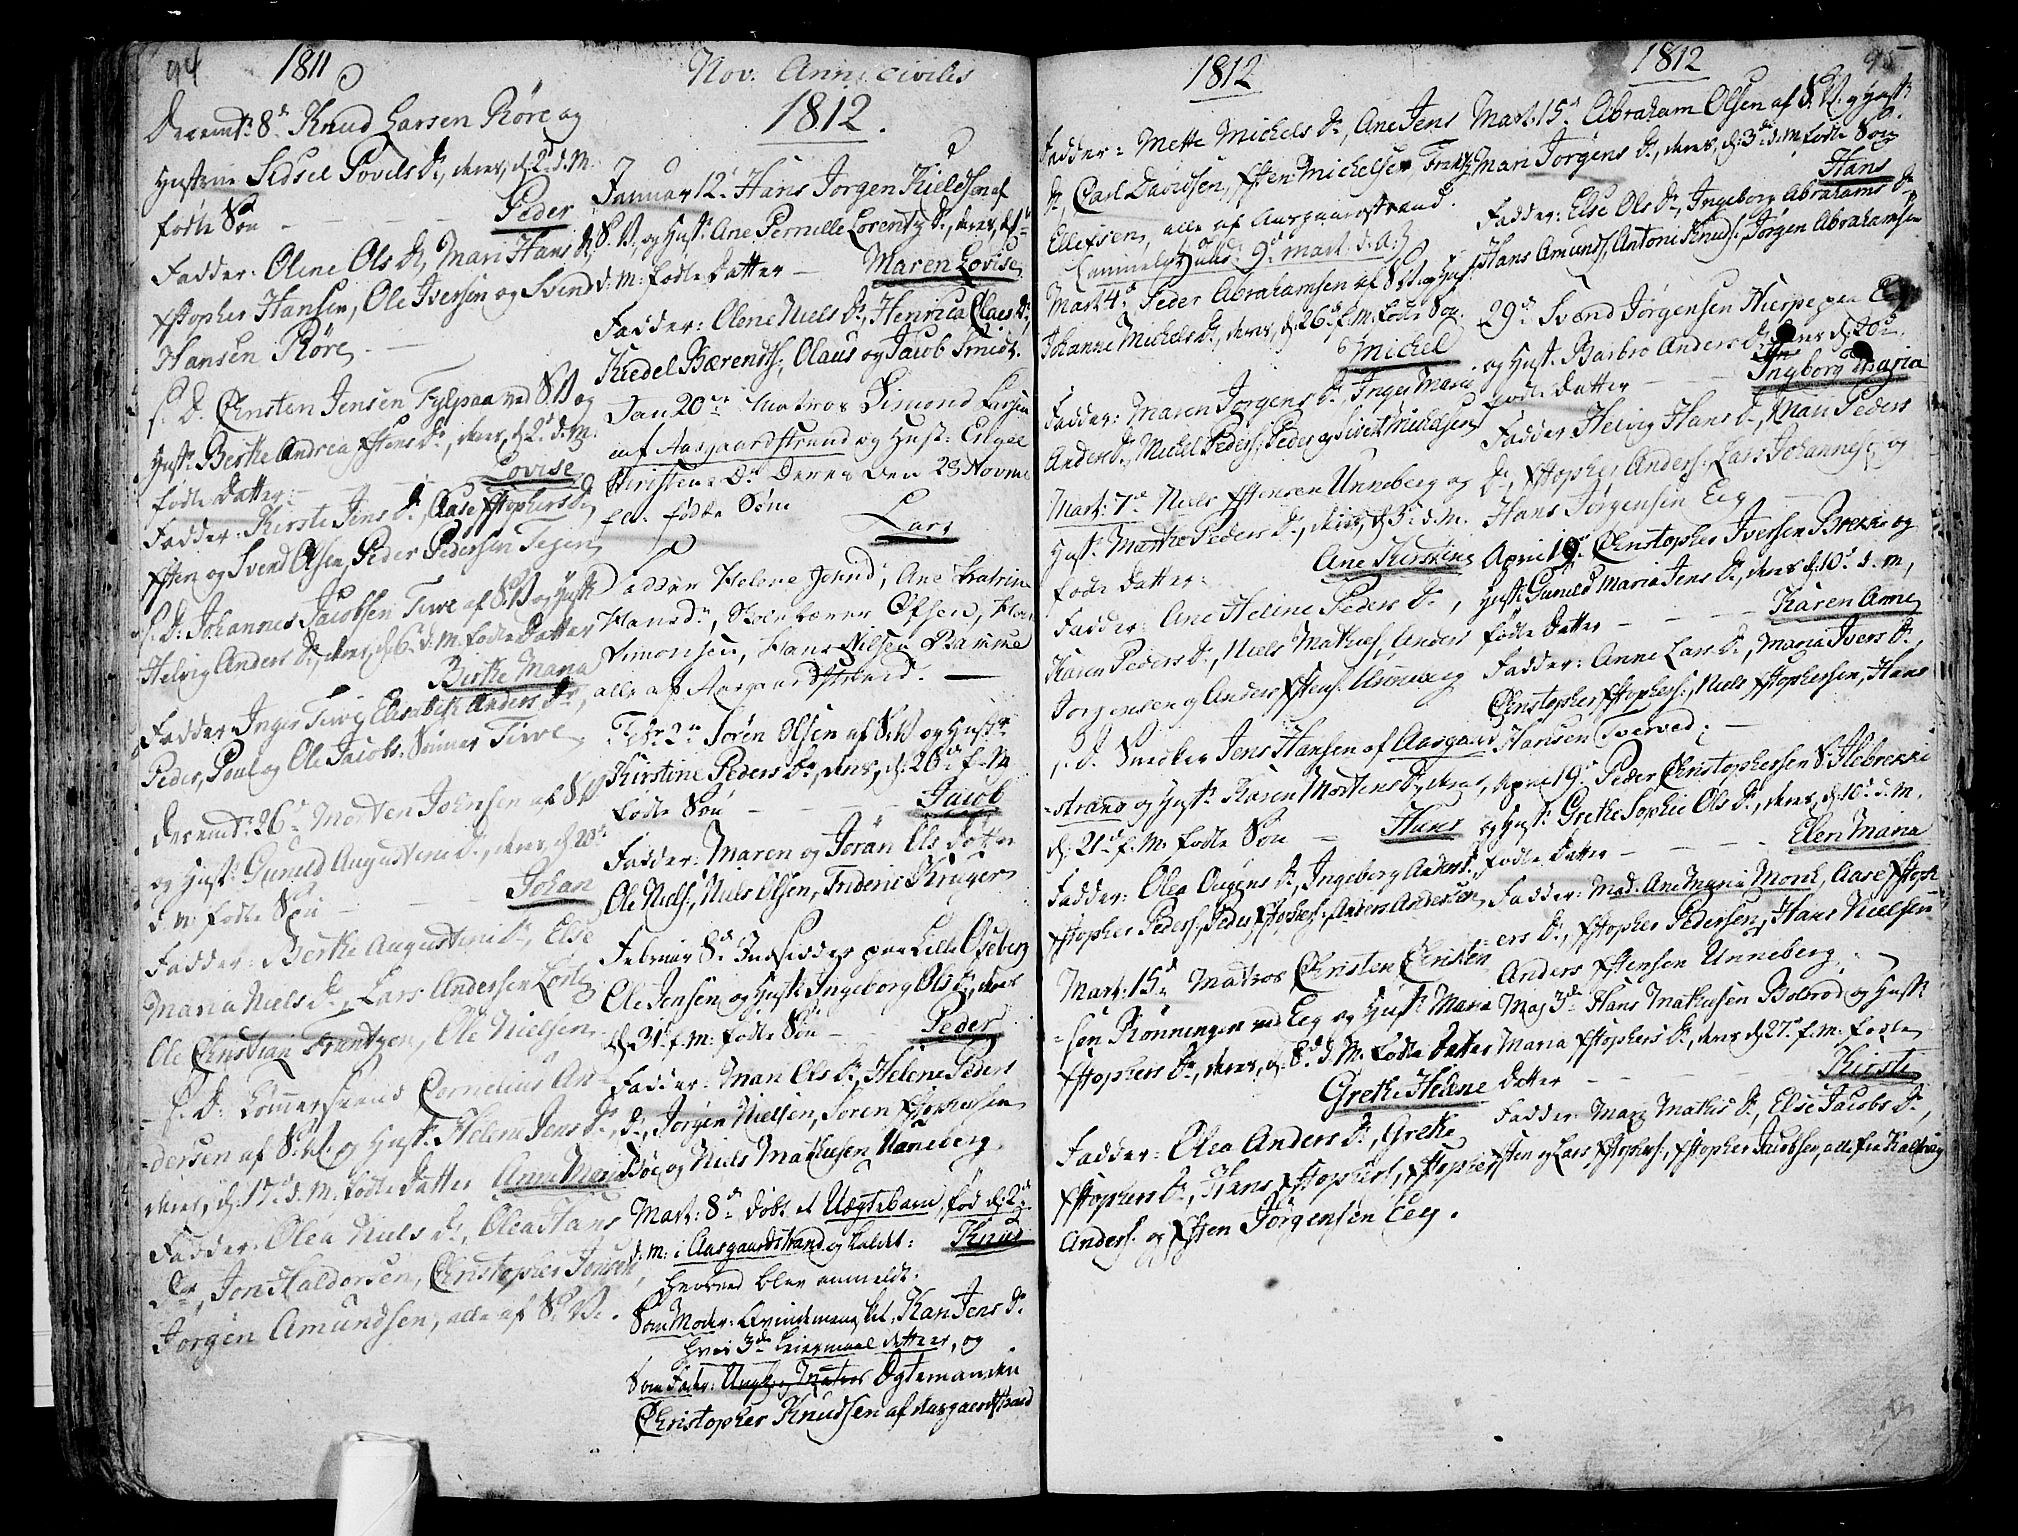 94
1811
Decembr: 8d. Knud Larsen Röre og
Hustrue Sidsel Povels Dr., deres, d: 2d. d. M.
fødte Søn — Peder
Fadder: Olene Ols Dr, Mari Hans Dr,
Xstopher Hansen, Ole Iversen og Svend
Hansen Röre. —
S. D. Christen Jensen Fylpaa ved S.V. og
Hust: Berthe Andrea Xstens Dr., deres, d. 2d. d. M.
fødte Datter — Lovise
Fadder: Kirste Jens Dr, Aase Xstophers Dr,
Xsten og Svend Olsen, Peder Pedersen Tegen
S. D: Johannes Jacobsen Tirve af S.V. og Hustr:
Helvig Anders Dr., deres, d: 6d. d. M. fødte Datter
Berthe Maria
Fadder Inger Tirve, Elisabeth Anders Dr,
Peder, Poul og Ole Jacobs: Sønner Tirve
Decembr: 26d. Morten Johnsen af S.V.
og Hust: Gunild Augustini Dr., deres, d. 20de
d. M: fødte Søn — Johan
Fadder: Berthe Augustini Dr, Else
Maria Niels Dr, Lars Andersen
Ole Christian Frantzen, Ole Nielsen
S. D: Tömmermand Cornelius An-
dersen af S.V. og Hust: Helene Jens Dr,
deres, d: 17d. d. M. fødte Datter Anne Mari
Fadder: Olea Niels Dr, Olea Hans
Dr, Jon Haldorsen, Christopher Jensen,
Jörgen Amundsen, alle af S. V.
Nov: Anni civilis
1812.
Januar 12d. Hans Jörgen Kieldsen af
S. V. og Hust: Ane Pernille Lorentz Dr., deres, d. 5te
d. M: fødte Datter — Maren Lovise
Fadder: Olene Niels Dr, Henrica Claes Dr,
Kiedel Bærends:, Olaus og Jacob Smidt.
Jan 20de Matros Simond Larsen
af Aasgaardstrand og Hust: Engel
Kirstens Dr Deres den 28 Novembr
f. A. fødte Søn Lars
Fadder Helene Johnd:, Ane Katrine
Hansd:, Skolelærer Ofsen, Hans
Simonsen, Hans Nilsen Ramme
alle af Aasgaardstrand. —
Febr. 2de Sören Olsen af S.V. og Hustr
Kirstine Peders Dr, deres, d: 26de f. M
fødte Søn — Jacob
Fadder: Maren og Jöran Els Datter
Ole Niels:, Niels Olsen, Frideric Krüger
Februar 8d. Indsidder paa Lille Oseberg
Ole Jensen og Hust: Ingeborg Ols Dr., deres
d. 31d. f. M: fødte Søn — Peder
Fadder: Mari Ols Dr, Helene Peders
Dr, Jörgen Nielsen, Sören Xstophersen
Böe og Niels Mathisen Unneberg.
Mart: 8d. døbt et Uægtebarn, fød d: 2d.
d. M: i Aasgaardstrand og kaldet: Knud
hvorved blev anmeldt:
Som Moder: Qvindemenskel, Kari Jens Dr
hvis 3de Leiermaal dette er, og
Som Fader: Ungk. og Matros Ægtemanden
Christopher Knudsen af Aasgaardstrand
1812
Fadder: Mette Michels Dr, Ane Jens
Dr, Carl Davidsen, Xsten Michelsen, Frantz
Ellefsen, alle af Aasgaardstrand.
Mart. 4d. Peder Abrahamsen af S.V. og Hust:
Johanne Michels Dr., deres, d: 26d. f. M. fødte Søn
Michel
Fadder: Maren Jörgens Dr. Inger Marie
Anders Dr, Michel Peders:, Peder og Sivert Michelsen
Mart: 7de Niels Xstensen Unneberg og
Hust: Marthe Peders Dr., deres, d. 3d. d. M.
fødte Datter: Ane Kirstine
Fadder: Ane Heline Peders Dr,
Karen Peders Dr, Niels Mathies:, Anders
Jörgensen og Anders Xstens: Unneberg
S. D. Snecker Jens Hansen af Aasgaard-
strand og Hust: Karen Mortens Dr, deres,
d. 21d. f. M: fødte Søn — Hans
Fadder: Olea Ougens Dr, Ingeborg Anders Dr,
Xstopher Peders:, Peder Xstophers:, Anders Andersen
Mart: 15d. Matros Christen Christen-
sen Rönningen ved Eeg og Hust: Maria
Xstophers Dr, deres, d. 8d. d. M. fødte Datter
Grethe Helene
Fadder: Olea Anders Dr, Grethe
Xstophers Dr, Hans Xstophers:, Xstopher
Anders: og Xsten Jörgensen Eeg.
1812
95
Mart: 15d. Abraham Olsen af S.V. og Hustr
Mari Jörgens Dr., deres, d: 3d. d. M. fødte Søn
Hans
Fadder: Else Ols Dr, Ingeborg Abrahams Dr
Hans Amunds:, Antoni Knuds:, Jörgen Abrahamsen
29d. Svend Jörgensen Hierpe paa Eeg
og Hust: Barbro Anders Dr, deres, d. 20de
fødte Datter — Ingborg Maria
Fadder Helvig Hans Dr, Mari Peders
Dr, Xstopher Anders: Lars Johannes: og
Hans Jörgensen Eeg —
April 19. Christopher Iversen Brekke og
Hust: Gunild Maria Jens Dr, deres d: 10d. d. M,
fødte Datter — Karen Anne
Fadder: Anne Lars Dr, Maria Ivers Dr,
Christopher Xstophers:, Niels Xstophersen, Hans
Hansen Tverved;
April 19d. Peder Christophersen S. Hebrekke
og Hust: Grethe Sophie Ols Dr, deres, d: 10d. d. M.
fødte Datter — Elen Maria
Fadder: Mad: Ane Maria Monk, Aase Xstoph-
ers Dr, Xstopher Pedersen, Hans Nielsen
Anders Xstensen Unneberg.
Maj 3de Hans Mathisen Bolerød og Hustr
Maria Xstophers Dr, deres d. 27d. f. M: fødte
Datter — Kirste
Fadder: Mari Mathis Dr, Else Jacobs Dr,
Xsten og Lars Xstophers:, Xstopher Jacobsen, alle fra